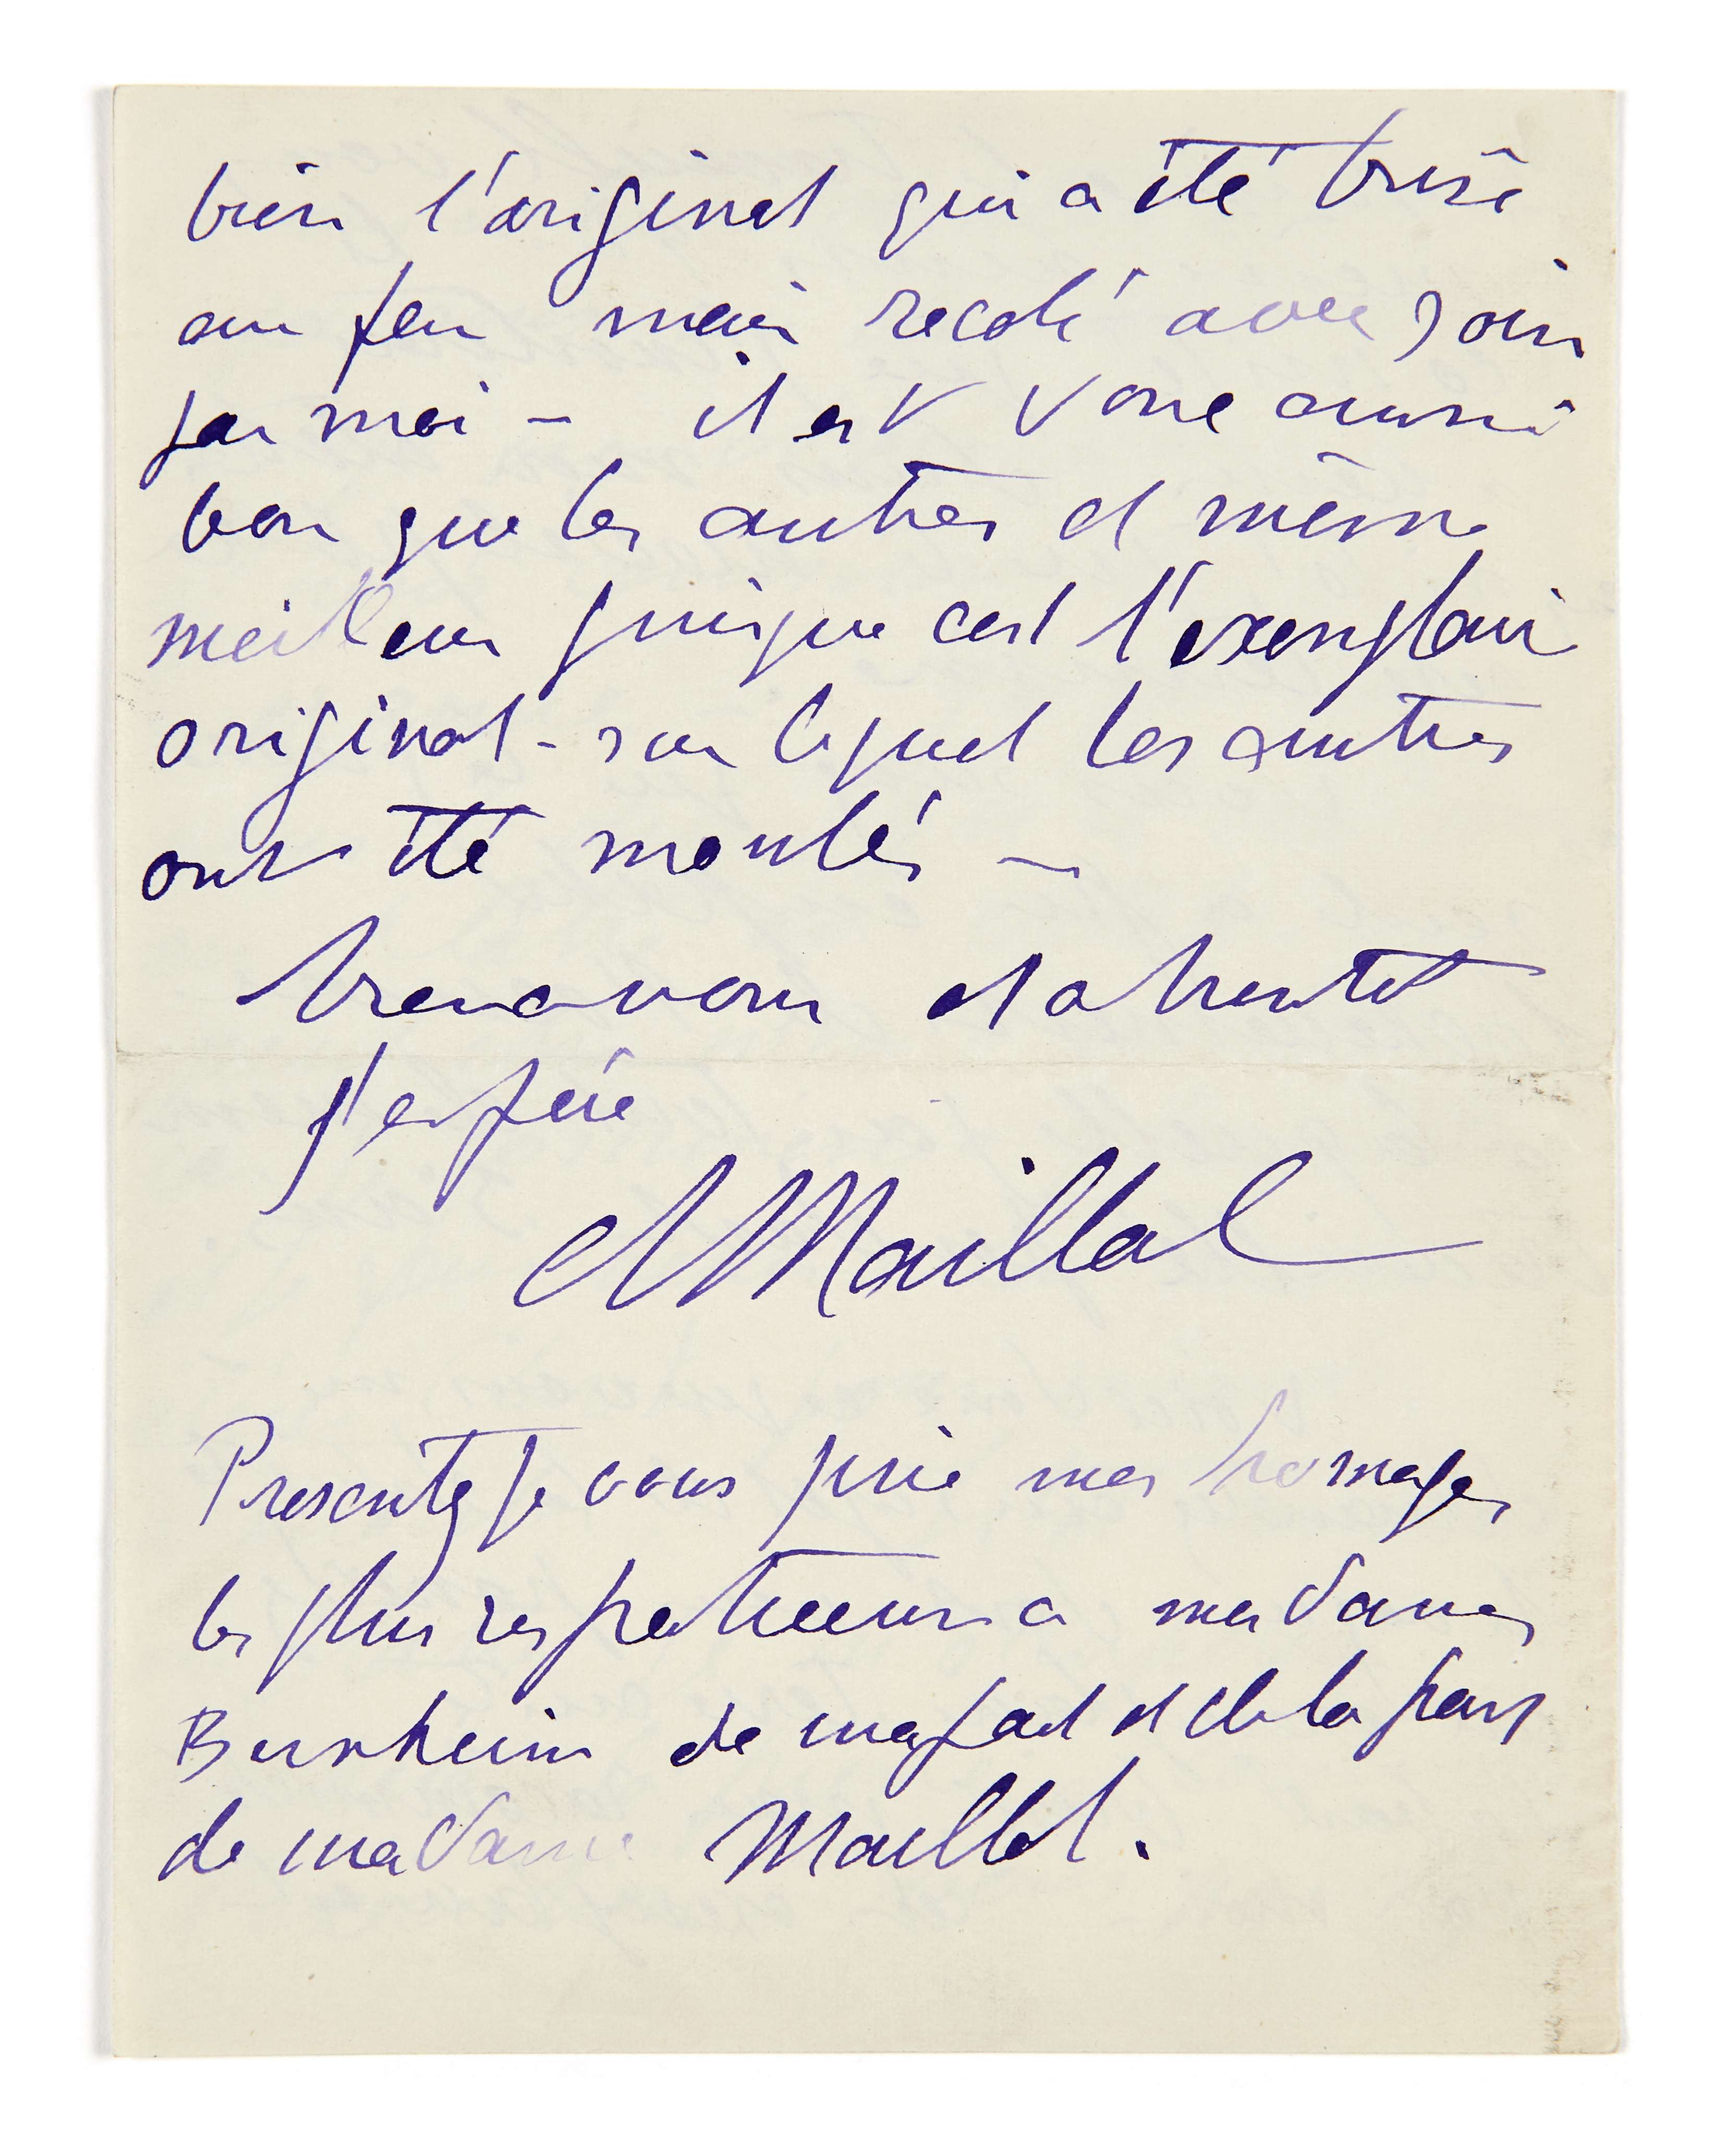 bien l'original qui a été brisé
au feu mais recolé avec soin
par moi – il est donc aussi
bon que les autres et même
meilleur puisque cest l'exemplaire
original - sur lequel les autres
ont été moulés –
bien a vous et a bientot
j'espère
A Maillol
Presentez je vous prie mes homages
les plus respectueux a mesdames
Bernheim de ma part et de la part
de madame Maillol.